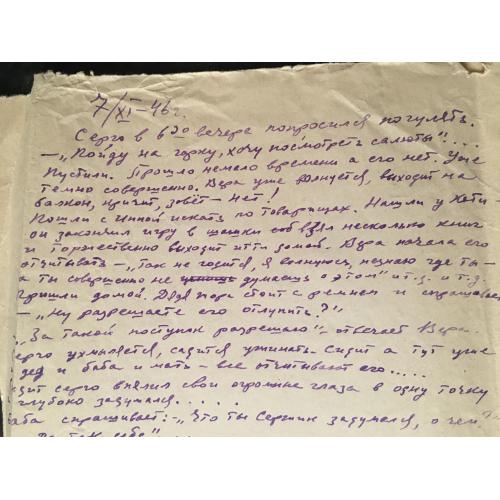 7/XI-46 г.
Серго в 6 30 вечера попросился погулять.
—„Пойду на горку, хочу посмотреть салюты"...
Пустили. Прошло немало времени а его нет. Уже
темно совершенно. Вера уже волнуется, выходит на
балкон, кричит, зовёт — нет!
Пошли с Инной искать по товарищах. Нашли у Хоти-
он закончил игру в шашки взял несколько книг
и торжественно выходит итти домой. Вера начала его
отчитывать — „Так не годится, я волнуюсь, незнаю где ты-
а ты совершенно не думаешь о этом" и т.д. и т.д.
Пришли домой. Дядя Жора стоит с ремнем и спрашивает
— „Ну разрешаете его отлупить?"
„За такой поступок разрешаю" — отвечает Вера.
Серго ухмыляется, садится ужинать. Сидит а тут уже
дед и баба и мать — все отчитывают его.....
Сидит Серго впялил свои огромные глаза в одну точку
глубоко задумался.....
баба спрашивает: — „Что ты Сергик задумался, о чем?"
так себе"